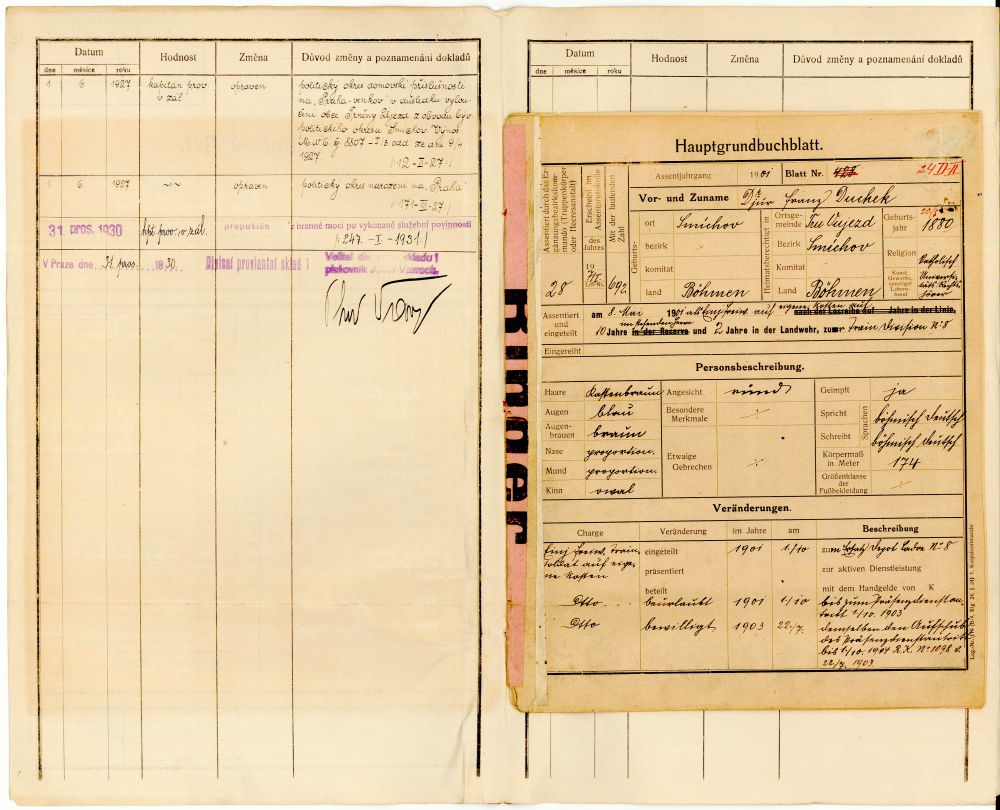 Datum
Hodnost
Změna
Důvod změny a poznamenání dokladů
dne
měsíce
roku
1.
6.
1927
kapitán prov.
v zál.
opraven
politický okres domovské příslušnosti
na „Praha-venkov“ v důsledku vylou-
čení obce Újezd z obvodu býv.
politického okresu Smíchov. Výnos
1927.
1.
6.
1927
opraven
politický okres narození na „Praha“
31. pros. 1930
propuštěn
z branné moci po vykonané služební povinnosti
/: 247. – I – 1931 :/
V Praze dne 31. pros. 1930.
Divisní proviantní sklad 1
Velitel div. skladu 1
plukovník Josef
Datum
Hodnost
Změna
Důvod změny a poznamenání dokladů
dne
měsíce
roku
Ringer
Hauptgrundbuchblatt.
Assentjahrgang
1901
Blatt Nr.
Vor- und Zuname
Franz Duchek
Assentiert durch das Er-
gänzungsbezirkskom-
mando (Truppenkörper
oder Heeresanstalt)
28
Erscheint im
Assentprotokolle
des Jahres
19
Mit der laufenden
Zahl
692
Geburts-
ort
Smíchov
bezirk
komitat
land
Böhmen
Heimatsberechtigt in
Ortsge-
meinde
Újezd
Bezirk
Smíchov
Komitat
Land
Böhmen
Geburts-
jahr
1880
Religion
Katholisch
Kunst,
Gewerbe,
sonstiger
Lebens-
beruf
Assentiert
und
eingeteilt
am 8. Mai 1901 als Einj. Freiw. auf eigene Kosten auf
nach der Losreihe auf Jahre in der Linie,
10 Jahre in der Reserve und 2 Jahre in der Landwehr, zur Train Division Nº 8
Eingereiht
Personsbeschreibung.
Haare
Kastenbraun
Augen
blau
Augen-
brauen
braun
Nase
proportion.
Mund
proportion.
Kinn
oval
Angesicht
rund
Besondere
Merkmale
÷
Etwaige
Gebrechen
÷
Geimpft
ja
Spricht
böhmisch Deutsch
Schreibt
böhmisch Deutsch
Sprachen
Körpermaß
in Meter
174
Größenklasse
der
Fußbekleidung
÷
Veränderungen.
Charge
Veränderung
im Jahre
am
Beschreibung
Einj. Freiw. Train
soldat auf eige-
ne Kosten
eingeteilt
1901
1/10
zum Ersatz Depot Cadre Nº 8
präsentiert
zur aktiven Dienstleistung
beteilt
mit dem Handgelde von K
Dtto
beurlaubt
1901
1/10
bis zum Präsenzdienstan-
tritt 1/10. 1903
Dtto
bewilligt
1903
22/7.
demselben den Aufschub
des Präsenzdienstantritts
bis 1/10. 1904 R.K. Nº 1098 v.
22/7. 1903.